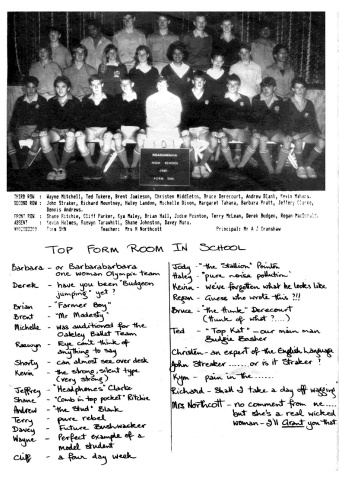 FORM 5HN
THIRD ROW : Wayne Mitchell, Ted Tukere, Brent Jamieson, Christen Middleton, Bruce Derecourt, Andrew Blank, Kevin
SECOND ROW : John Straker, Richard Mountney, Haley Landon, Michelle Dixon, Margaret Tahana, Barbara Pratt, Jeffery Clarke,
Dennis Andrews.
FRONT ROW : Shane Ritchie, Cliff Parker, Kym Maley, Brian Hall, Jodie Pointon, Terry McLean, Derek Budgen, Regan MacDonald.
ABSENT : Kevin Holmes, Raewyn Tarawhiti, Shane Johnston, Davey Hura.
Form 5HN Teacher: Mrs H Northcott Principal: Mr A I Cranshaw
TOP FORM ROOM IN SCHOOL
Barbara - or Barbarabarbara
one woman Olympic team
Derek - have you been "Budgeon
jumping" yet?
Brian - "Farmer Boy"
Brent - "Mr Modesty"
Michelle - was auditioned for the
Oakley Ballet Team
Raewyn - Eye can't think of
anything to say
Shorty - can almost see over desk
Kevin - the strong, silent type
(very strong)
Jeffrey - "Headphones" Clarke
Shane - "Comb in top pocket" Ritchie
Andrew - "the Stud" Blank
Terry - pure rebel
Davey - Future Bushwacker
Wayne - Perfect example of a
model student
Cliff - a four day week
Jody - "the "Stallion" Pointon
Haley - "pure noise pollution"
Kevin - we've forgotten what he looks like
Regan - Guess who wrote this ?!!
Bruce - "the "hunk" Derecourt
(hunk of what?....)
Ted - "Top Kat" - our main man
Budgie Basher
Christen - an expert of the English Language
John Streker ...... or is it Straker!
Kym - pain in the ......
Richard - Shall I take a day off wagging
Mrs Northcott - no comment from me....
but she's a real wicked
woman - I'll Grant you that